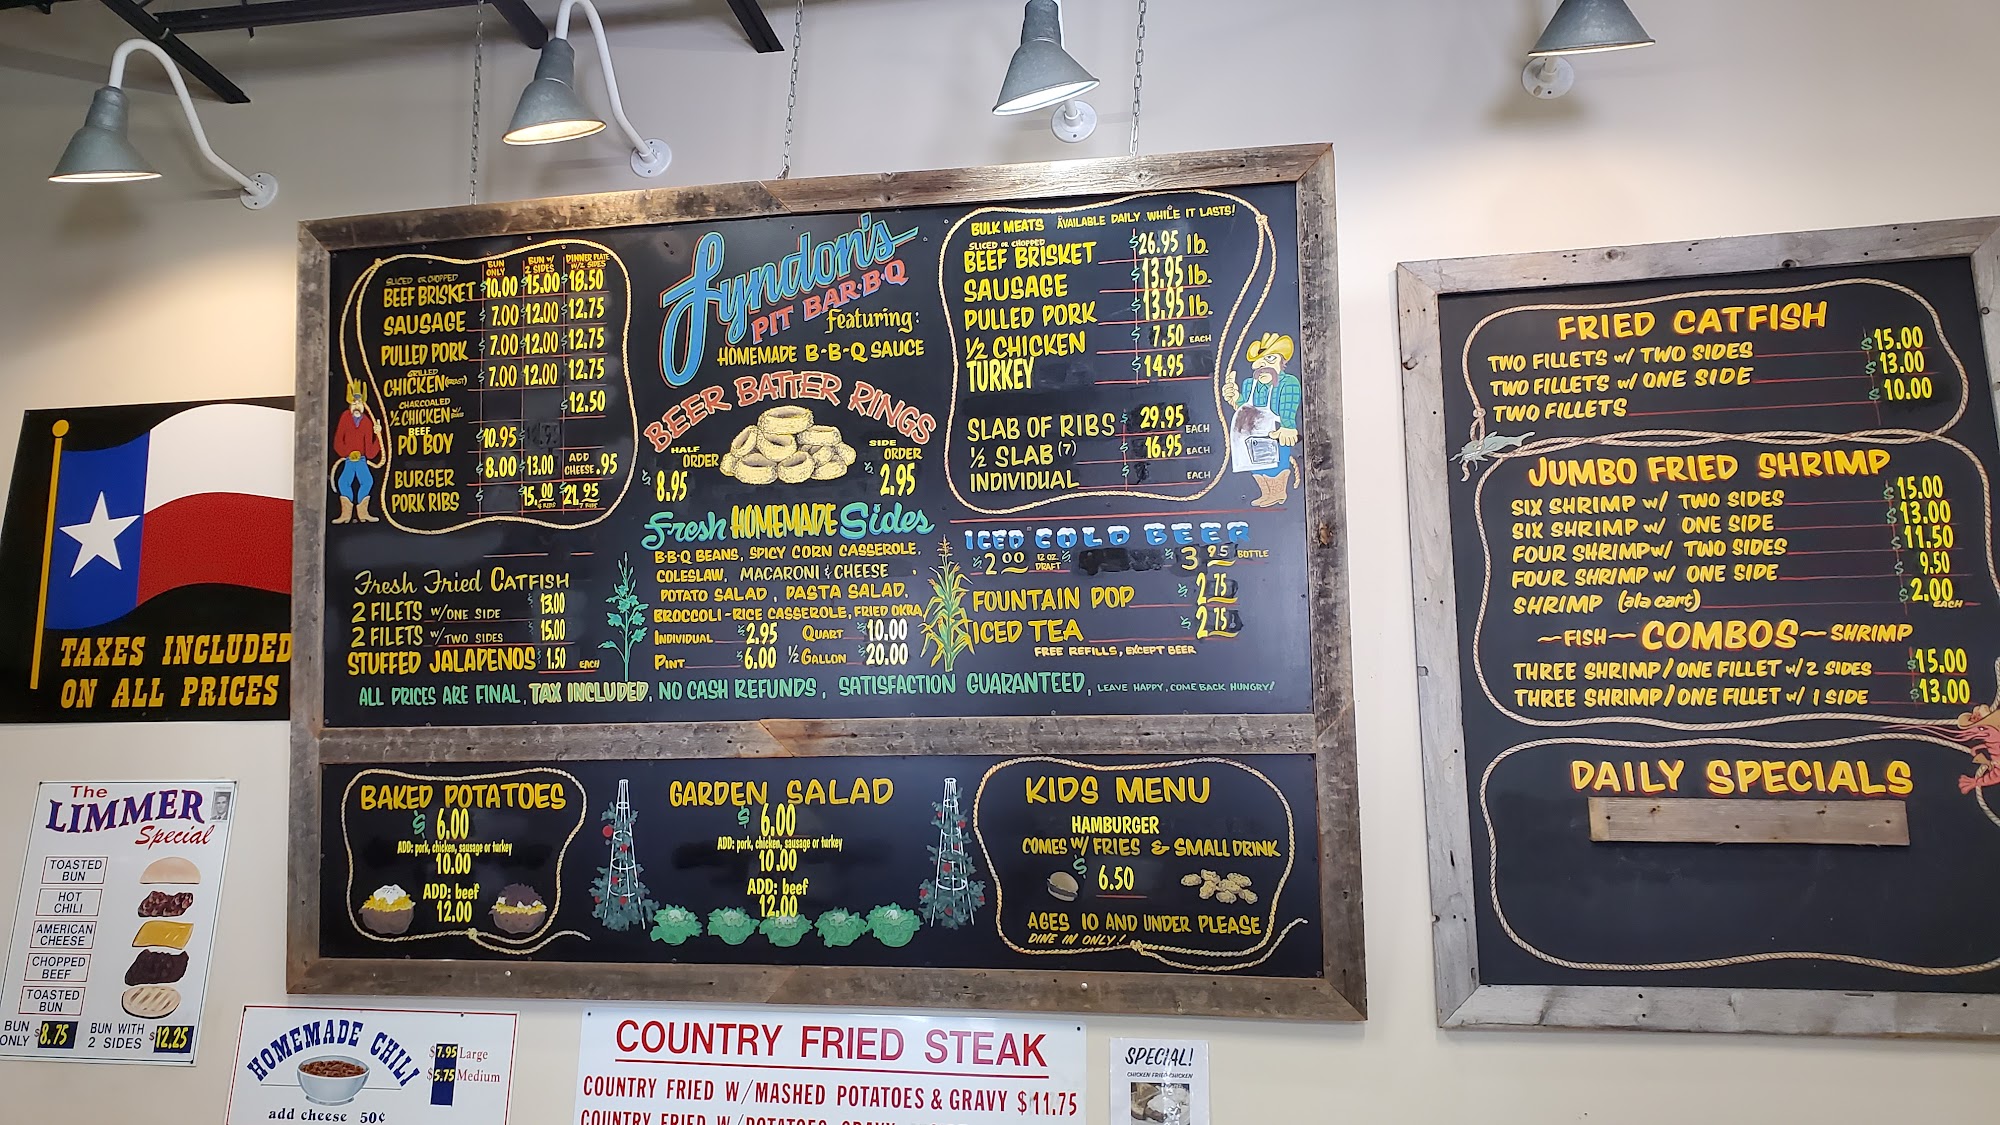 TAXES INCLUDED
ON ALL PRICES
The
LIMMER
Special
TOASTED
BUN
HOT
CHILI
AMERICAN
CHEESE
CHOPPED
BEEF
TOASTED
BUN
BUN
ONLY $8.75 BUN WITH
2 SIDES $12.25
SLICED OR CHOPPED BUN ONLY BUN W/ 2 SIDES DINNER PLATE W/2 SIDES
BEEF BRISKET $10.00 $15.00 $18.50
SAUSAGE $7.00 $12.00 $12.75
PULLED PORK $7.00 $12.00 $12.75
GRILLED
CHICKEN (BREAST) $7.00 12.00 12.75
CHARCOALED
1/2 CHICKEN $12.50
BEEF
PO BOY $10.95
BURGER $8.00 $13.00 ADD CHEESE .95
PORK RIBS $15.00 $21.95
Fresh Fried CATFISH
2 FILETS W/ONE SIDE $13.00
2 FILETS W/TWO SIDES $15.00
STUFFED JALAPENOS $1.50 EACH
Lyndon's
PIT BAR-B-Q
Featuring:
HOMEMADE B-B-Q SAUCE
BEER BATTER RINGS
HALF ORDER $8.95
SIDE ORDER $2.95
Fresh HOMEMADE Sides
B-B-Q BEANS, SPICY CORN CASSEROLE,
COLESLAW, MACARONI & CHEESE
POTATO SALAD, PASTA SALAD,
BROCCOLI-RICE CASSEROLE, FRIED OKRA
INDIVIDUAL $2.95 QUART $10.00
PINT $6.00 1/2 GALLON $20.00
BULK MEATS AVAILABLE DAILY WHILE IT LASTS!
SLICED OR CHOPPED
BEEF BRISKET $26.95 lb.
SAUSAGE $13.95 lb.
PULLED PORK $13.95 lb.
1/2 CHICKEN $7.50 EACH
TURKEY $14.95
SLAB OF RIBS $29.95 EACH
1/2 SLAB (7) $16.95 EACH
INDIVIDUAL $ EACH
ICED COLD BEER
$2.00 12 OZ. DRAFT $ $3.95 BOTTLE
FOUNTAIN POP $2.75
ICED TEA $2.75
FREE REFILLS, EXCEPT BEER
ALL PRICES ARE FINAL, TAX INCLUDED, NO CASH REFUNDS, SATISFACTION GUARANTEED, LEAVE HAPPY, COME BACK HUNGRY!
BAKED POTATOES
$6.00
ADD: pork, chicken, sausage or turkey
10.00
ADD: beef
12.00
GARDEN SALAD
$6.00
ADD: pork, chicken, sausage or turkey
10.00
ADD: beef
12.00
KIDS MENU
HAMBURGER
COMES W/ FRIES & SMALL DRINK
$6.50
AGES 10 AND UNDER PLEASE
DINE IN ONLY!
FRIED CATFISH
TWO FILLETS W/ TWO SIDES $15.00
TWO FILLETS W/ ONE SIDE $13.00
TWO FILLETS $10.00
JUMBO FRIED SHRIMP
SIX SHRIMP W/ TWO SIDES $15.00
SIX SHRIMP W/ ONE SIDE $13.00
FOUR SHRIMP W/ TWO SIDES $11.50
FOUR SHRIMP W/ ONE SIDE $9.50
SHRIMP (ala cart) $2.00 EACH
~FISH~ COMBOS ~SHRIMP
THREE SHRIMP/ONE FILLET W/ 2 SIDES $15.00
THREE SHRIMP/ONE FILLET W/ 1 SIDE $13.00
DAILY SPECIALS
HOMEMADE CHILI
$7.95 Large
$5.75 Medium
add cheese 50¢
COUNTRY FRIED STEAK
COUNTRY FRIED W/MASHED POTATOES & GRAVY $11.75
COUNTRY FRIED W/POTATOES
SPECIAL!
CHICKEN FRIED CHICKEN